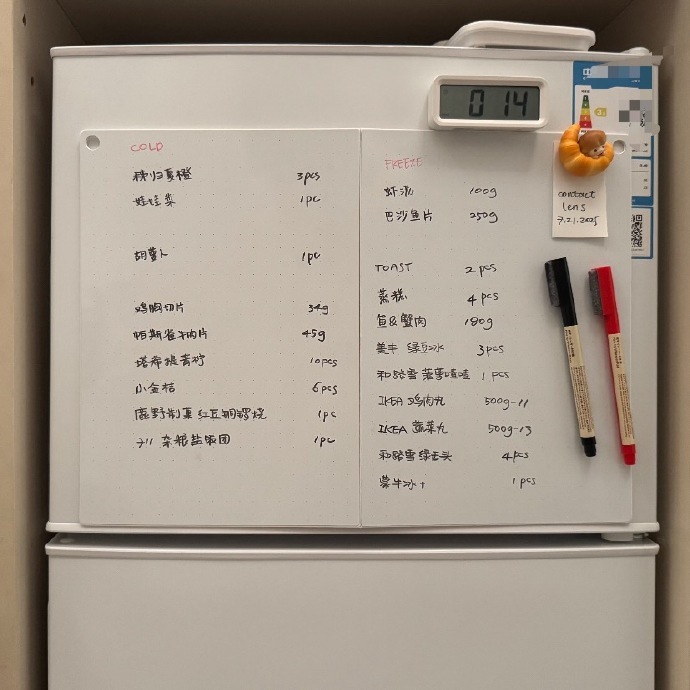 0 14
COLD
秭归夏橙 3pcs
娃娃菜 1pc
胡萝卜 1pc
鸡胸切片 34g
帕斯雀牛肉片 45g
塔希提青柠 10pcs
小金桔 6pcs
鹿野制菓 红豆铜锣烧 1pc
711 杂粮盐饭团 1pc
FREEZE
虾滑 100g
巴沙鱼片 250g
TOAST 2pcs
蒸糕 4pcs
鱼&蟹肉 180g
美丰 绿豆冰 3pcs
和路雪 菠萝嘻嗒 1pcs
IKEA 鸡肉丸 500g-11
IKEA 蔬菜丸 500g-13
和路雪 绿舌头 4pcs
蒙牛冰+ 1pcs
contact
lens
7.21.2025